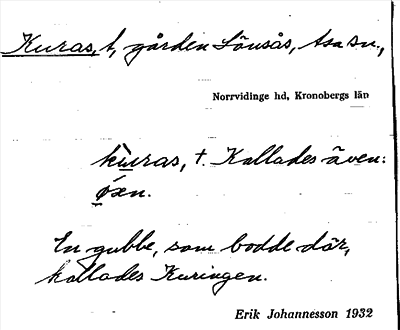 Kuras, t, gården Lönsås, Asa sn.,
Norrvidinge hd, Kronobergs län
kùras, t. Kallades även:
ǿxn.
En gubbe, som bodde där,
kallades Kuringen.
Erik Johannesson 1932